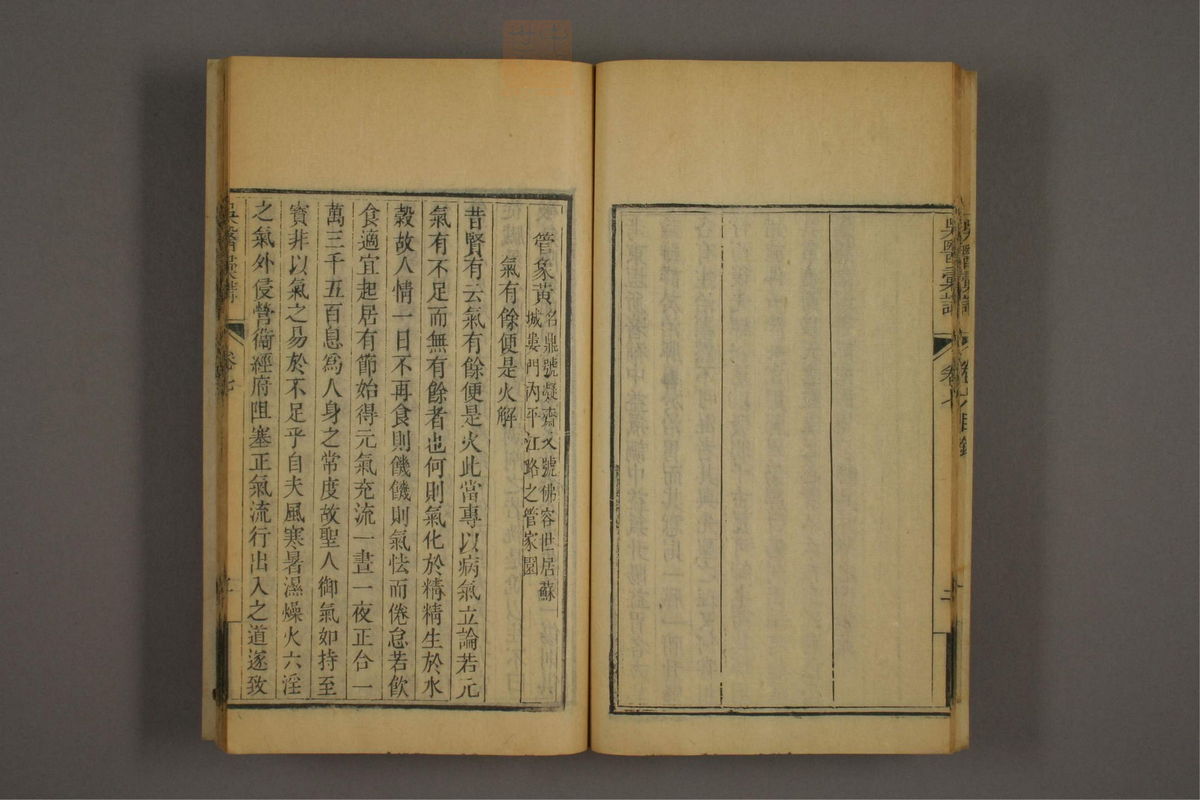 吳醫彙講
卷七
管象黃
名鼎號凝齋又號佛容世居蘇
城婁門內平江路之管家園
氣有餘便是火解
昔賢有云氣有餘便是火此當專以病氣立論若元
氣有不足而無有餘者也何則氣化於精精生於水
穀故人情一日不再食則饑饑則氣怯而倦怠若飮
食適宜起居有節始得元氣充流一晝一夜正合一
萬三千五百息爲人身之常度故聖人御氣如持至
寳非以氣之易於不足乎自夫風寒暑濕燥火六淫
之氣外侵營衞經府阻塞正氣流行出入之道遂致
吳醫彙講
卷七